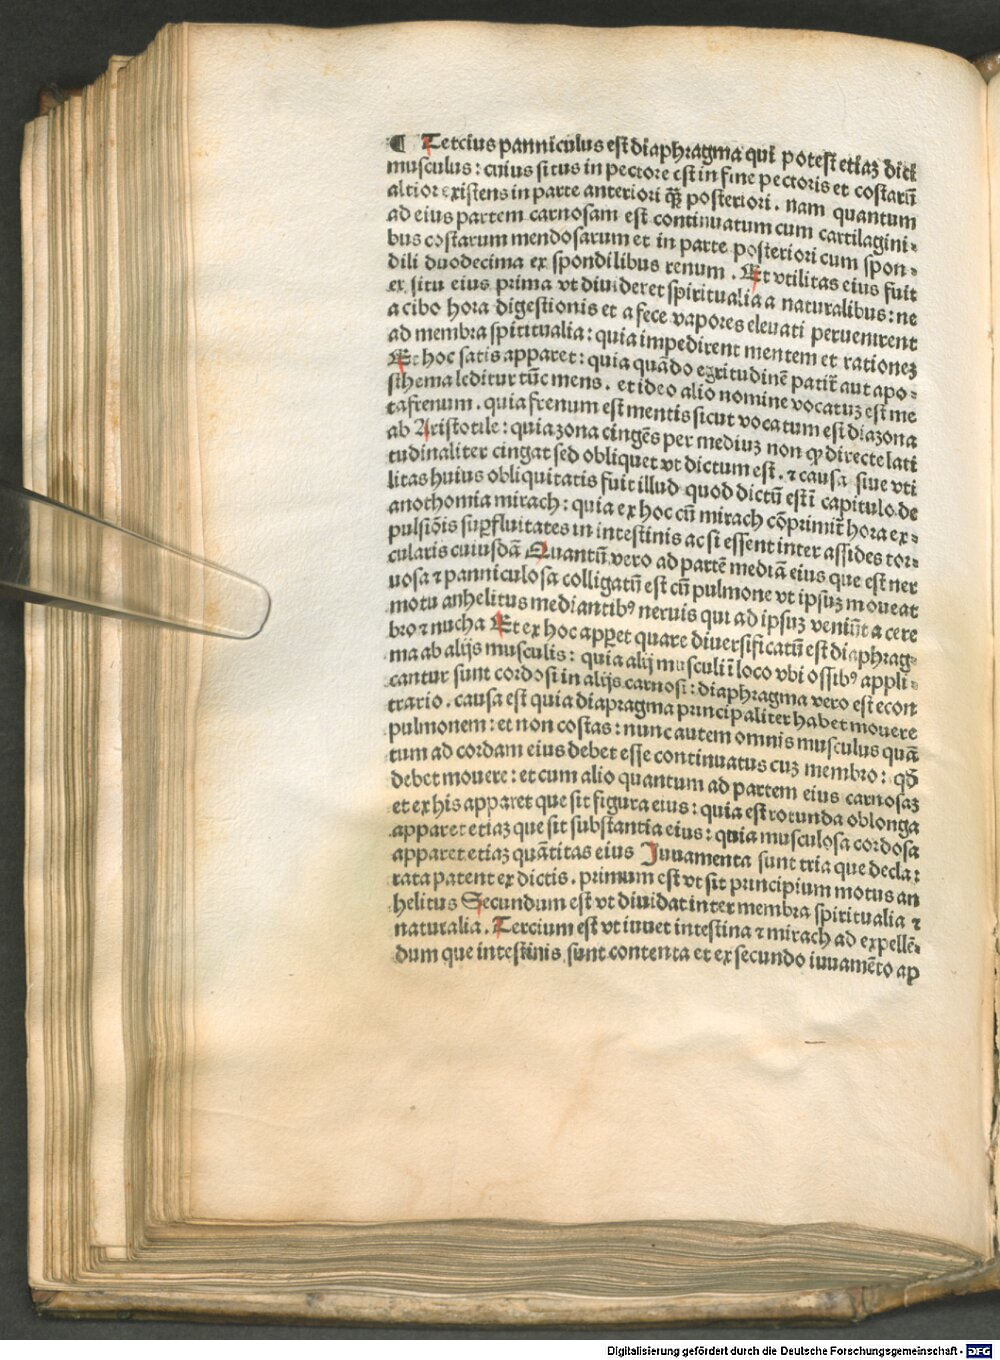 ¶ Tercius panniculus est diaphragma qui potest etiaz dici
musculus: cuius situs in pectore est in fine pectoris et costarū
altior existens in parte anteriori qz posteriori. nam quantum
ad eius partem carnosam est continuatum cum cartilagini-
bus costarum mendosarum et in parte posteriori cum spon-
dili duodecima ex spondilibus renum. Et vtilitas eius fuit
ex situ eius prima vt diuideret spiritualia a naturalibus: ne
a cibo hora digestionis et a fece vapores eleuati peruenirent
ad membra spiritualia: quia impedirent mentem et rationez
Et hoc satis apparet: quia quādo egritudinē patir̄ aut apo-
sthema leditur tūc mens. et ideo alio nomine vocatuz est me
tafrenum. quia frenum est mentis sicut vocatum est diazona
ab Aristotile: quia zona cingēs per mediuz non ꝙ directe lati
tudinaliter cingat sed obliquet vt dictum est. ⁊ causa siue vti
litas huius obliquitatis fuit illud quod dictū est ī capitulo de
anothomia mirach: quia ex hoc cū mirach cōprimit̄ hora ex-
pulsiōis suꝑfluitates in intestinis ac si essent inter assides tor-
cularis cuiusdā Quantū vero ad partē mediā eius que est ner
uosa ⁊ panniculosa colligatū est cū pulmone vt ipsuz moueat
motu anhelitus mediantibꝰ neruis qui ad ipsuz veniūt a cere
bro ⁊ nucha Et ex hoc apꝑet quare diuersificatū est diaphrag-
ma ab alijs musculis: quia alij musculi ī loco vbi ossibꝰ appli-
cantur sunt cordosi in alijs carnosi: diaphragma vero est econ
trario. causa est quia diapragma principaliter habet mouere
pulmonem: et non costas: nunc autem omnis musculus quā
tum ad cordam eius debet esse continuatus cuz membro: qḋ
debet mouere: et cum alio quantum ad partem eius carnosaz
et ex his apparet que sit figura eius: quia est rotunda oblonga
apparet etiaz que sit substantia eius: quia musculosa cordosa
apparet etiaz quātitas eius Iuuamenta sunt tria que decla:
rata patent ex dictis. primum est vt sit principium motus an
helitus Secundum est vt diuidat inter membra spiritualia ⁊
naturalia. Tercium est vt iuuet intestina ⁊ mirach ad expellē-
dum que intestinis sunt contenta et ex secundo iuuamēto aꝑ
Digitalisierung gefördert durch die Deutsche Forschungsgemeinschaft - DFG